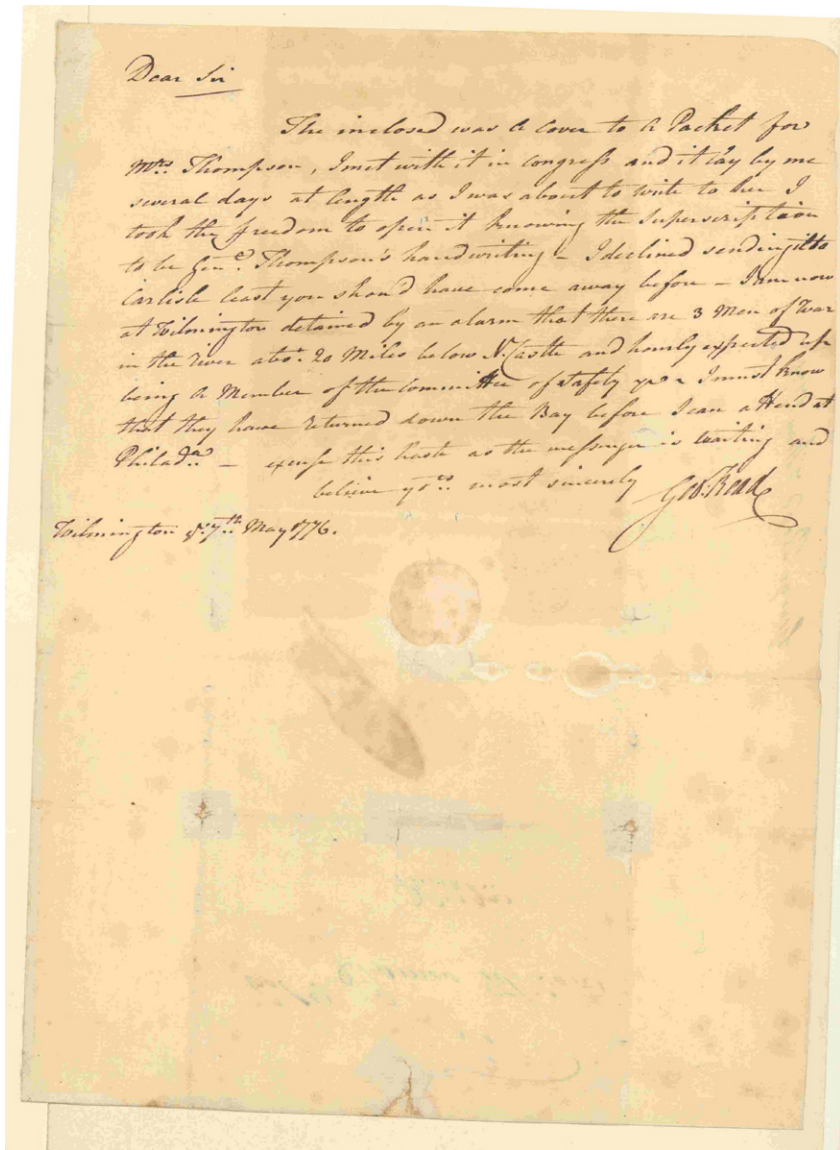 Dear Sir
The inclosed was a cover to a Packet for
Mrs. Thompson, I met with it in congress and it lay by me
several days at length as I was about to write to her I
took the freedom to open it knowing the Superscription
to be Genl. Thompson's handwriting – I declined sending it to
Carlisle least you shou'd have come away before – I am now
at Wilmington detained by an alarm that there are 3 Men of War
in the river abt. 20 Miles below N. Castle and hourly expected up
being a Member of the committee of safety I must know
that they have returned down the Bay before I can attend at
Philada. – excuse this haste as the messenger is waiting and
believe yrs. most sincerely Geo: Read
Wilmington 7th May 1776.